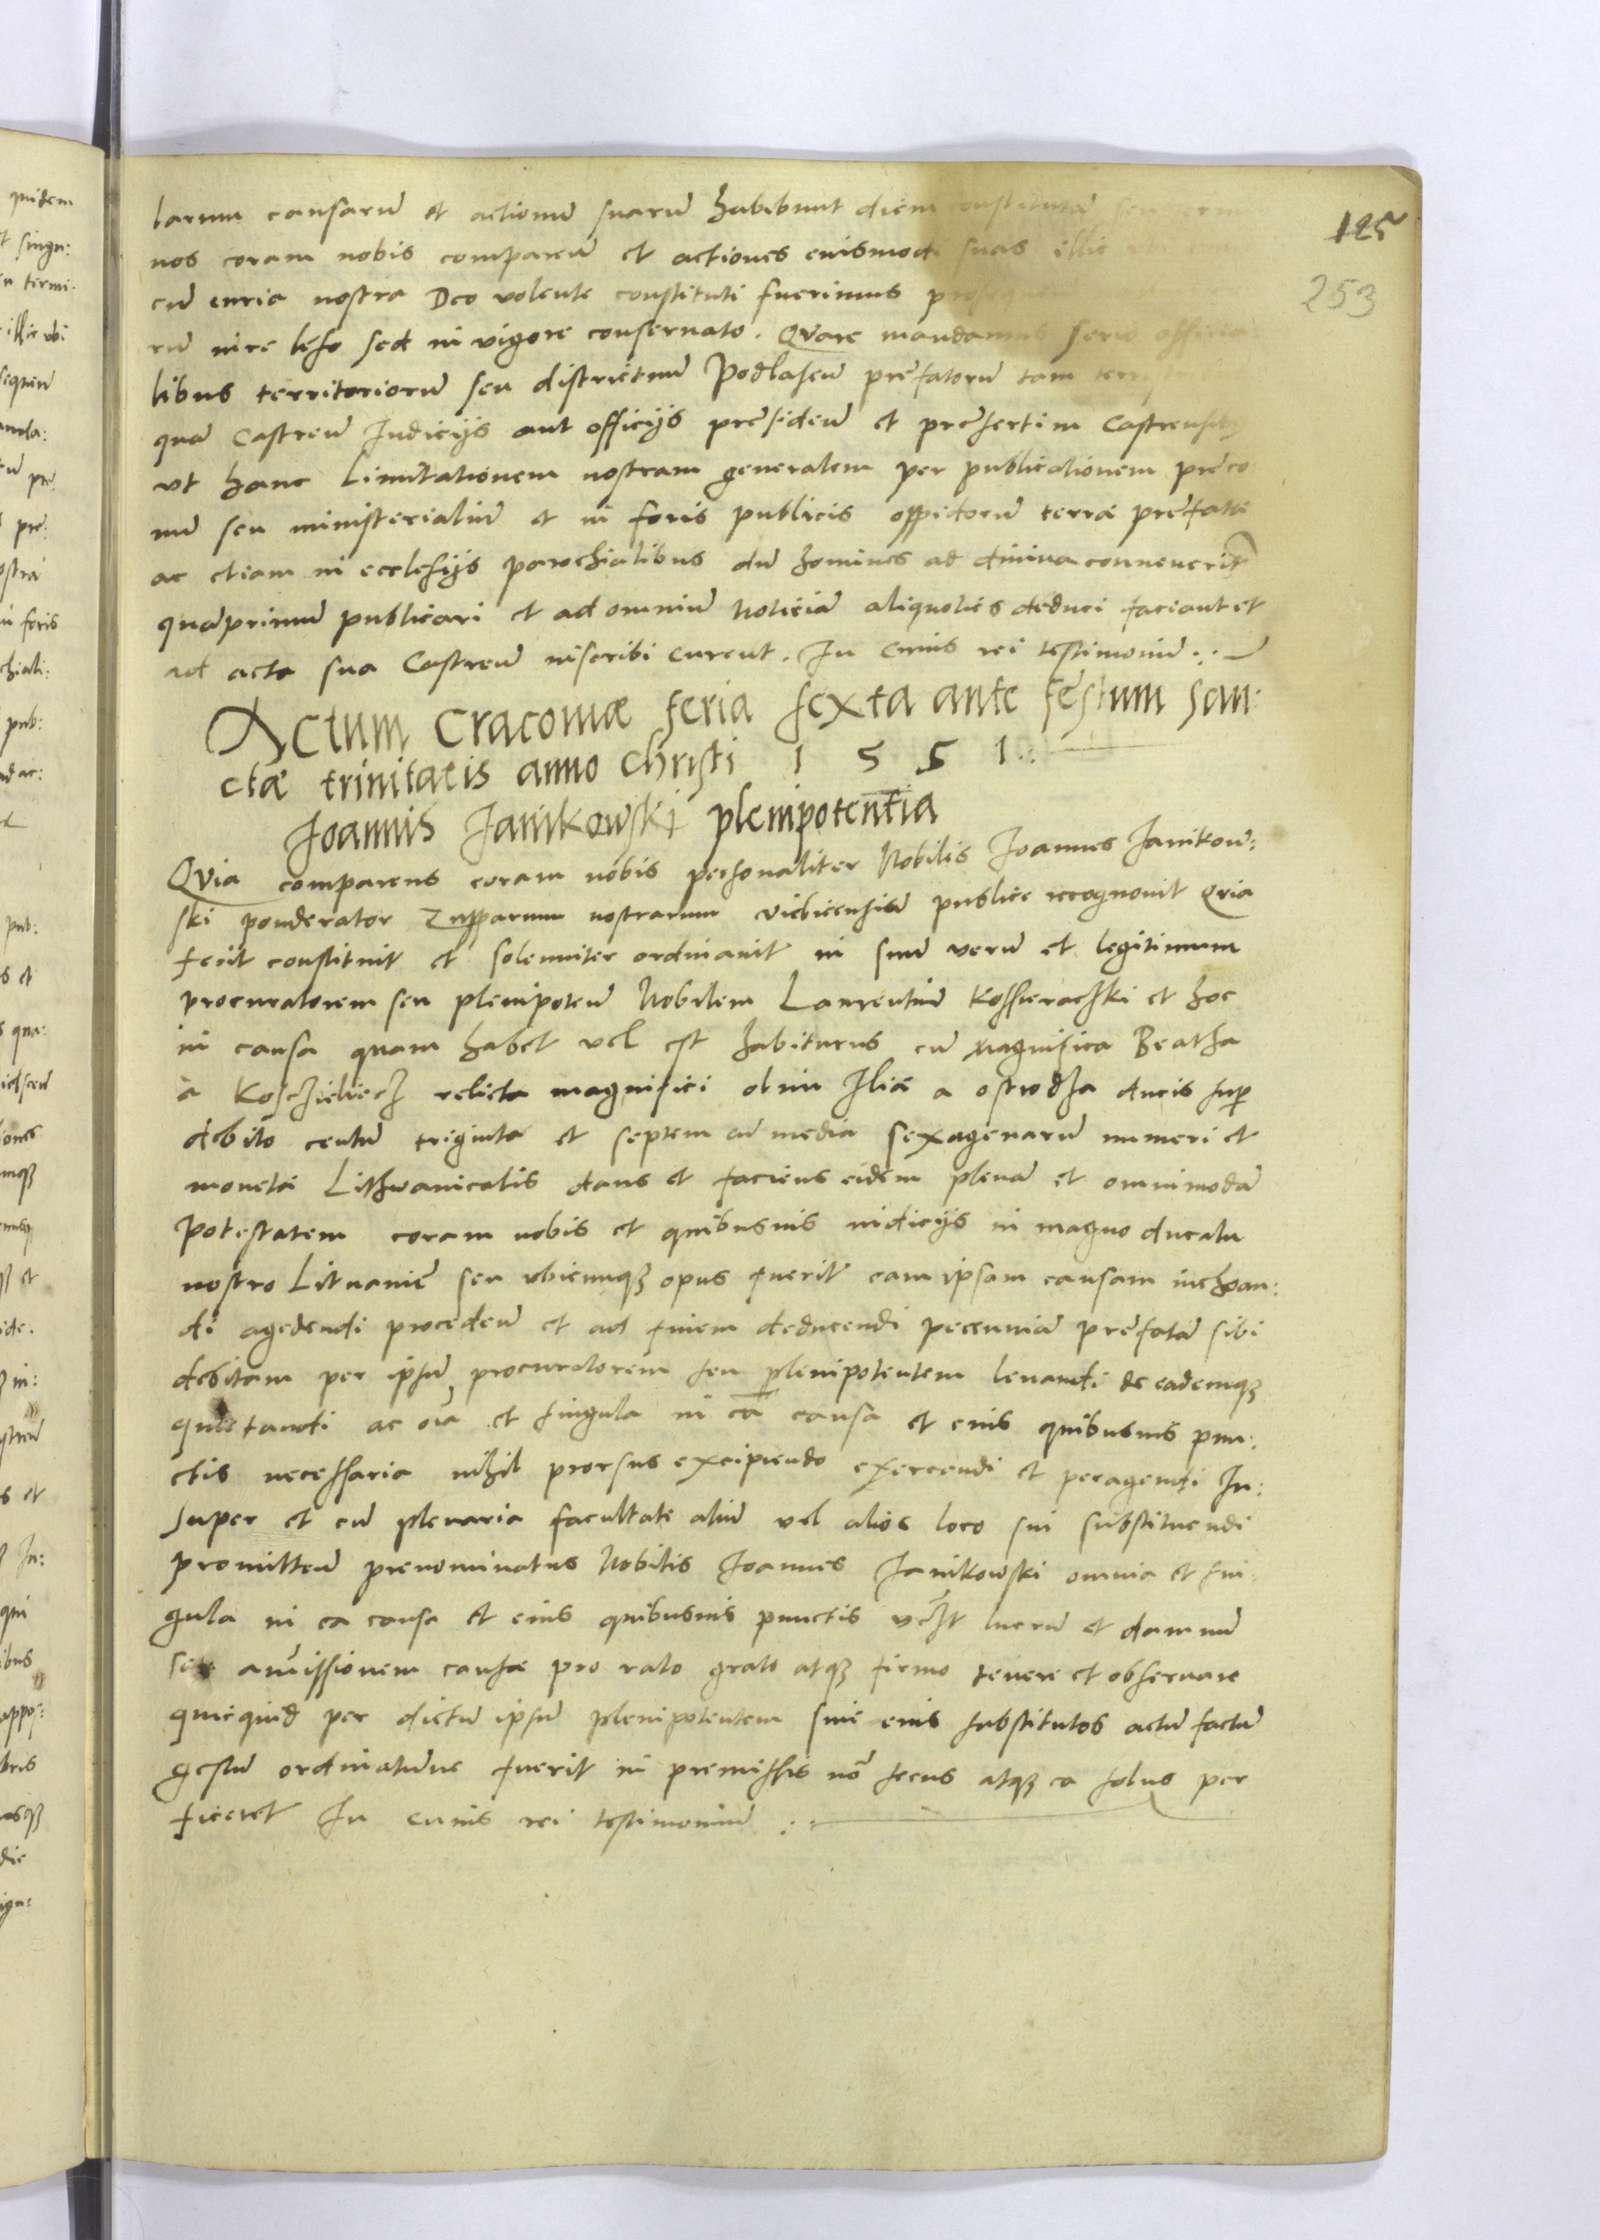 125
253
larum causarū et actionū suarū habebunt diem constitutā seu
nos coram nobis compareū et actiones euismodi suas illic
cū curia nostra Deo volente constituti fuerimus
rū iure leso sed in vigore conseruato. Quare mandamus serio officia
libus territoriorū seu districtuū Podlaseū prefatorū tam
quā Castreū Iudicijs aut officijs presideū et presertim Castrensibus
vt hanc Limitationem nostram generalem per publicationem preco
nū seu ministerialiū et in foris publicis oppidorū terrae prefatae
ac etiam in ecclesijs parochialibus dū homines ad diuina conuenerīt
quāprimum publicari et ad omniū noticiā aliquoties deduci faciant et
ad acta sua Castreū inscribi curent. In Cuius rei testimoniū.
Actum Cracouiæ feria sexta ante festum san:
ctæ trinitatis anno Christi 1551.
Ioannis Ianikowski plenipotentia
Quia comparens coram nobis personaliter Nobilis Ioannes Ianikow:
ski ponderator Zupparum nostrarum Vieliceñsiū publice recognouit Quia
fecit constituit et solenniter ordinauit in suū verū et legitimum
procuratorem seu plenipoteū Nobilem Laurentiū Kossierachski et hoc
in causa quam habet vel est habiturus cū magnifica Beatha
a Koschieliech relicta magnifici olim Iliæ a ostrodza ducis sup
debito centū triginta et septem cū media sexagenarū numeri et
monetæ Lithwanicalis dans et faciens eidem plenā et omnimodā
potestatem coram nobis et quibusuis iudicijs in magno ducatu
nostro Lituanię seu vbicunqꝫ opus fuerit eam ipsam causam inchoan:
di agedendi procedeū et ad finem deducendi pecuniā prefatā sibi
debitam per ipsū procuratorem seu plenipotentem leuandi de eademqꝫ
quietandi ac oīa et singula in eā causa et eius quibusuis pun:
ctis necessaria nihil prorsus excipiendo exercendi et peragendi In:
super et cū plenaria facultate aliū vel alios loco sui substituendi
promitteū prenominatus Nobilis Ioannes Ianikowski omnia et sin:
gula in ea causa et eius quibusuis punctis lucrū et damnū
siue amissionem causæ pro rato grato atqꝫ firmo tenere et obseruare
quicquid per dictū ipsū plenipotentem siue eius substitutos actū factū
gestū ordinatumue fuerit in premissis nō secus atqꝫ ea solus per
ficeret In cuius rei testimoniū